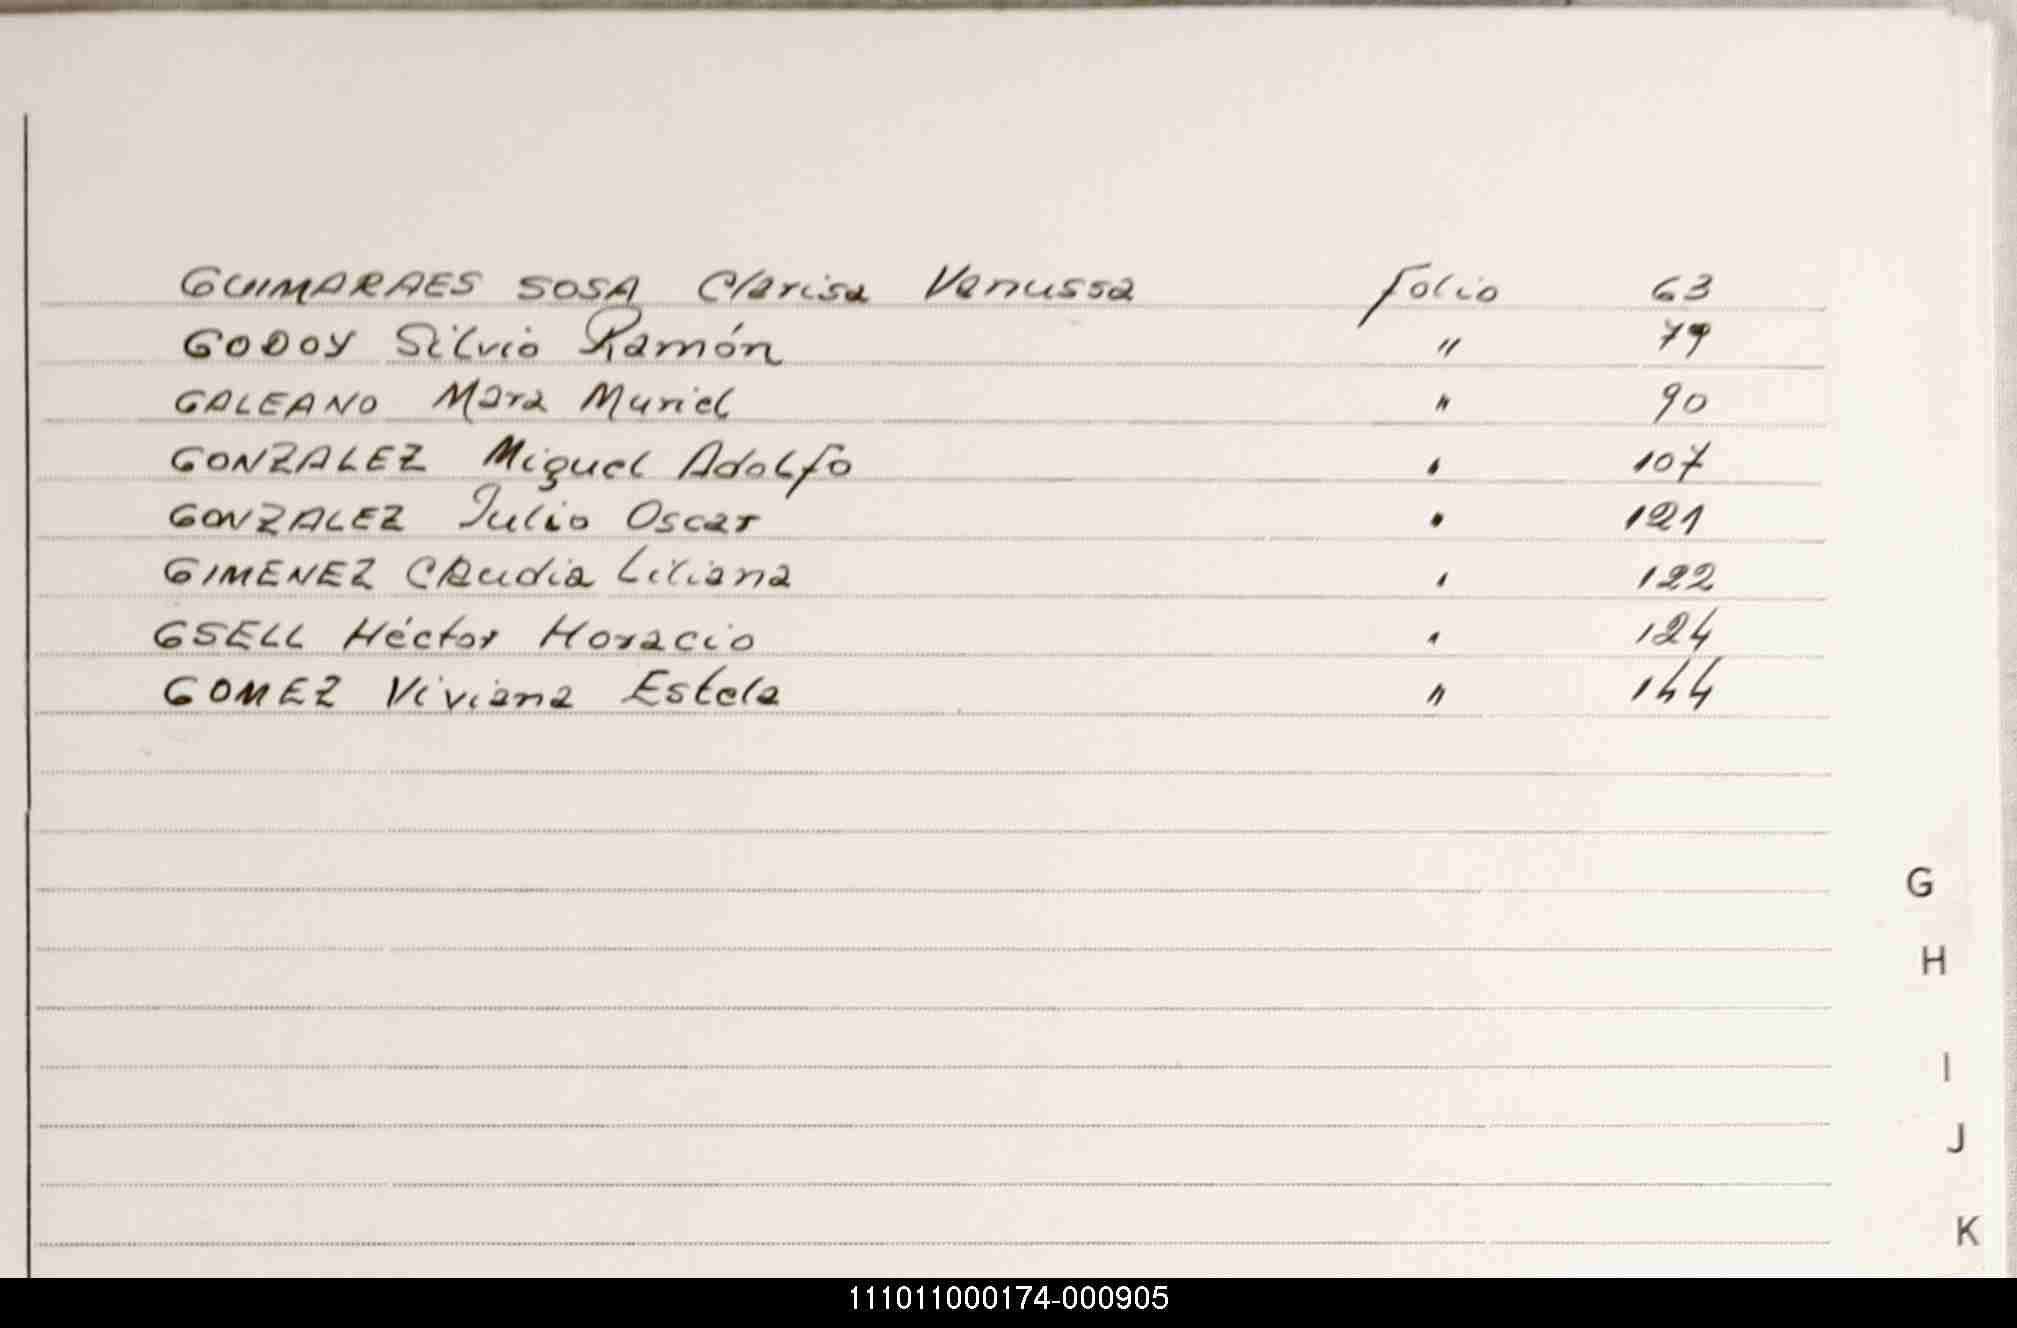 GUIMARAES SOSA Clarisa Vanussa Folio 63
GODOY Silvio Ramón " 79
GALEANO Mara Muriel " 90
GONZALEZ Miguel Adolfo " 107
GONZALEZ Julio Oscar " 121
GIMENEZ Claudia Liliana " 122
GSELL Héctor Horacio " 124
GOMEZ Viviana Estela " 144
G
H
I
J
K
111011000174-000905